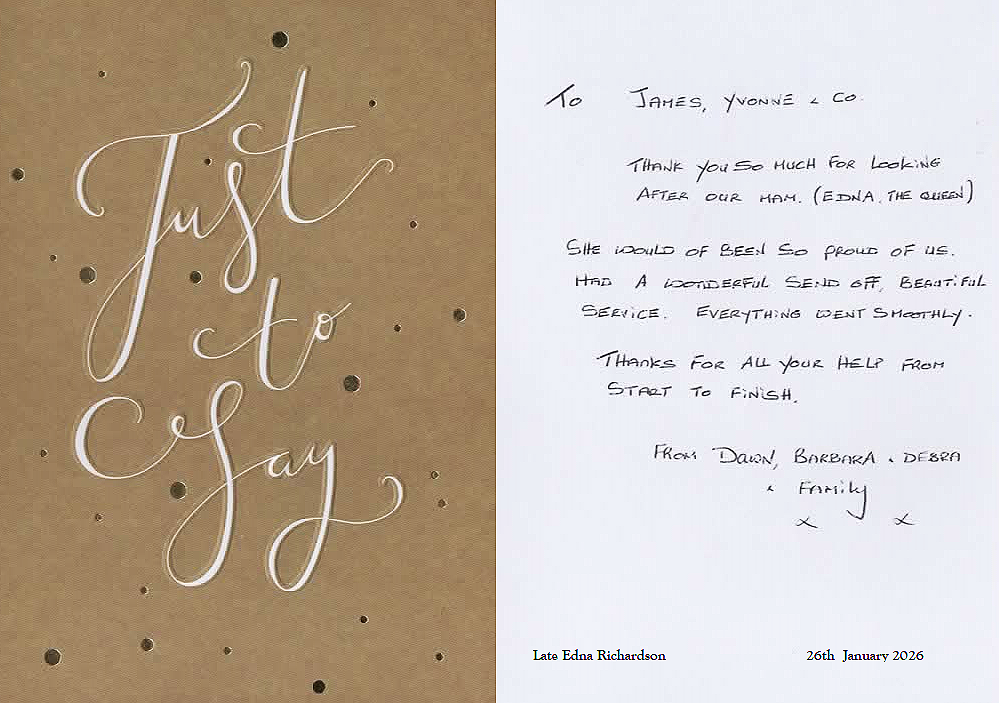 Just
to
Say
To James, Yvonne & Co.
Thank you so much for looking
after our mam. (Edna, the Queen)
She would of been so proud of us.
Had a wonderful send off, beautiful
service. Everything went smoothly.
Thanks for all your help from
start to finish.
From Dawn, Barbara & Debra
& Family
x x
Late Edna Richardson 26th January 2026